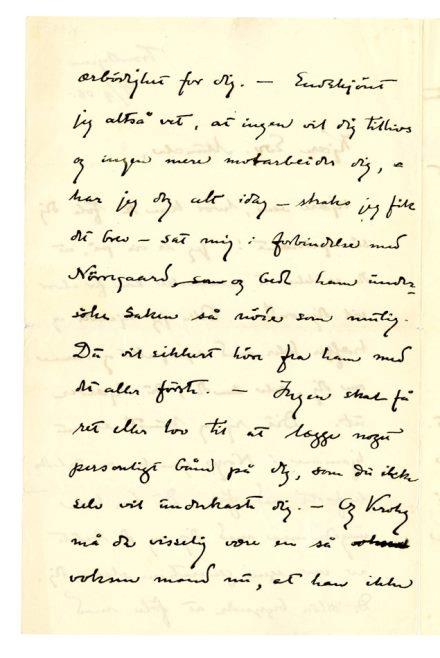 ærbödighet for dig. — Endskjönt
jeg altså vet, at ingen vil dig tillivs
og ingen mere motarbeider dig, så
har jeg dog alt idag — straks jeg fik
dit brev — sat mig i forbindelse med
Nörregaard, som og bedt ham under-
söke saken så nöie som mulig.
Du vil sikkert höre fra ham med
det aller förste. — Ingen skal få
ret eller lov til at lægge noget
personligt bånd på dig, som du ikke
selv vil underkaste dig. — Og Krohg
må da visselig være en så
voksen mand nu, at han ikke